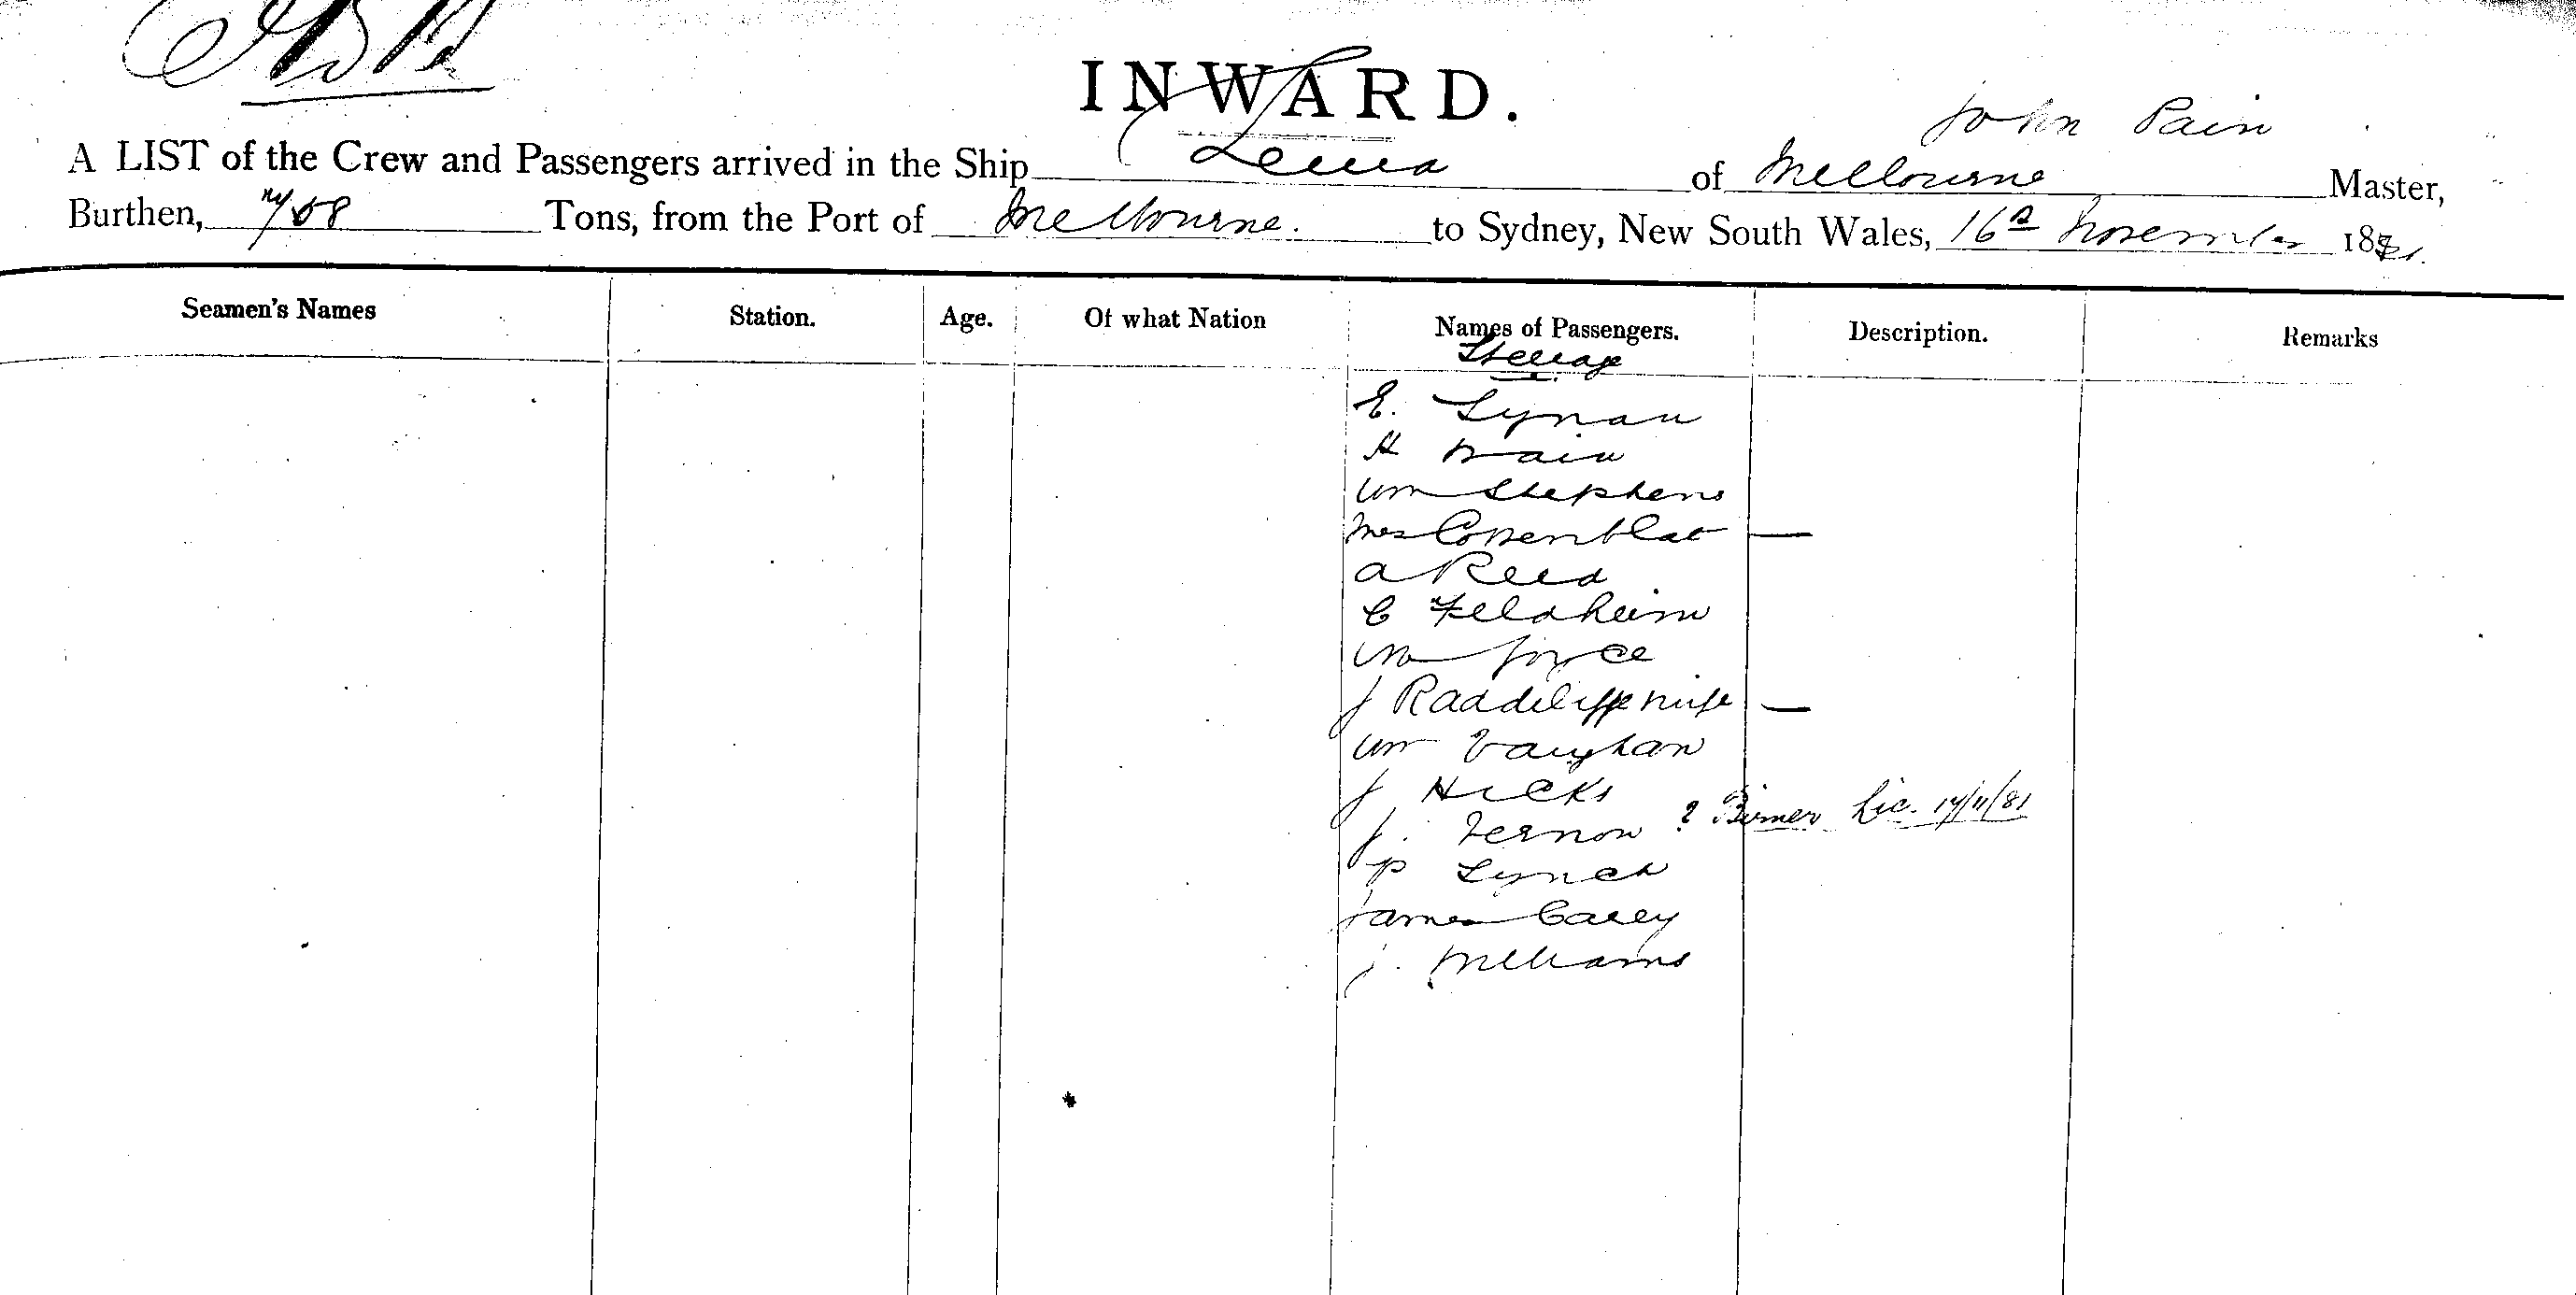 INWARD.
John Pain
A LIST of the Crew and Passengers arrived in the Ship Leura of Melbourne Master,
Burthen, Tons, from the Port of Melbourne. to Sydney, New South Wales, 16th November 1881.
Seamen's Names Station. Age. Of what Nation Names of Passengers. Description. Remarks
Steerage
E. Lynau
H Bain
Wm Stephens
Mrs Coppenblat —
A Reed
C Feldheim
Wm Joyce
J Raddcliffe wife —
Wm Vaughan
J Hicks
J. Vernon ? Lic. 17/11/81
P Lynch
James Carey
J. Williams